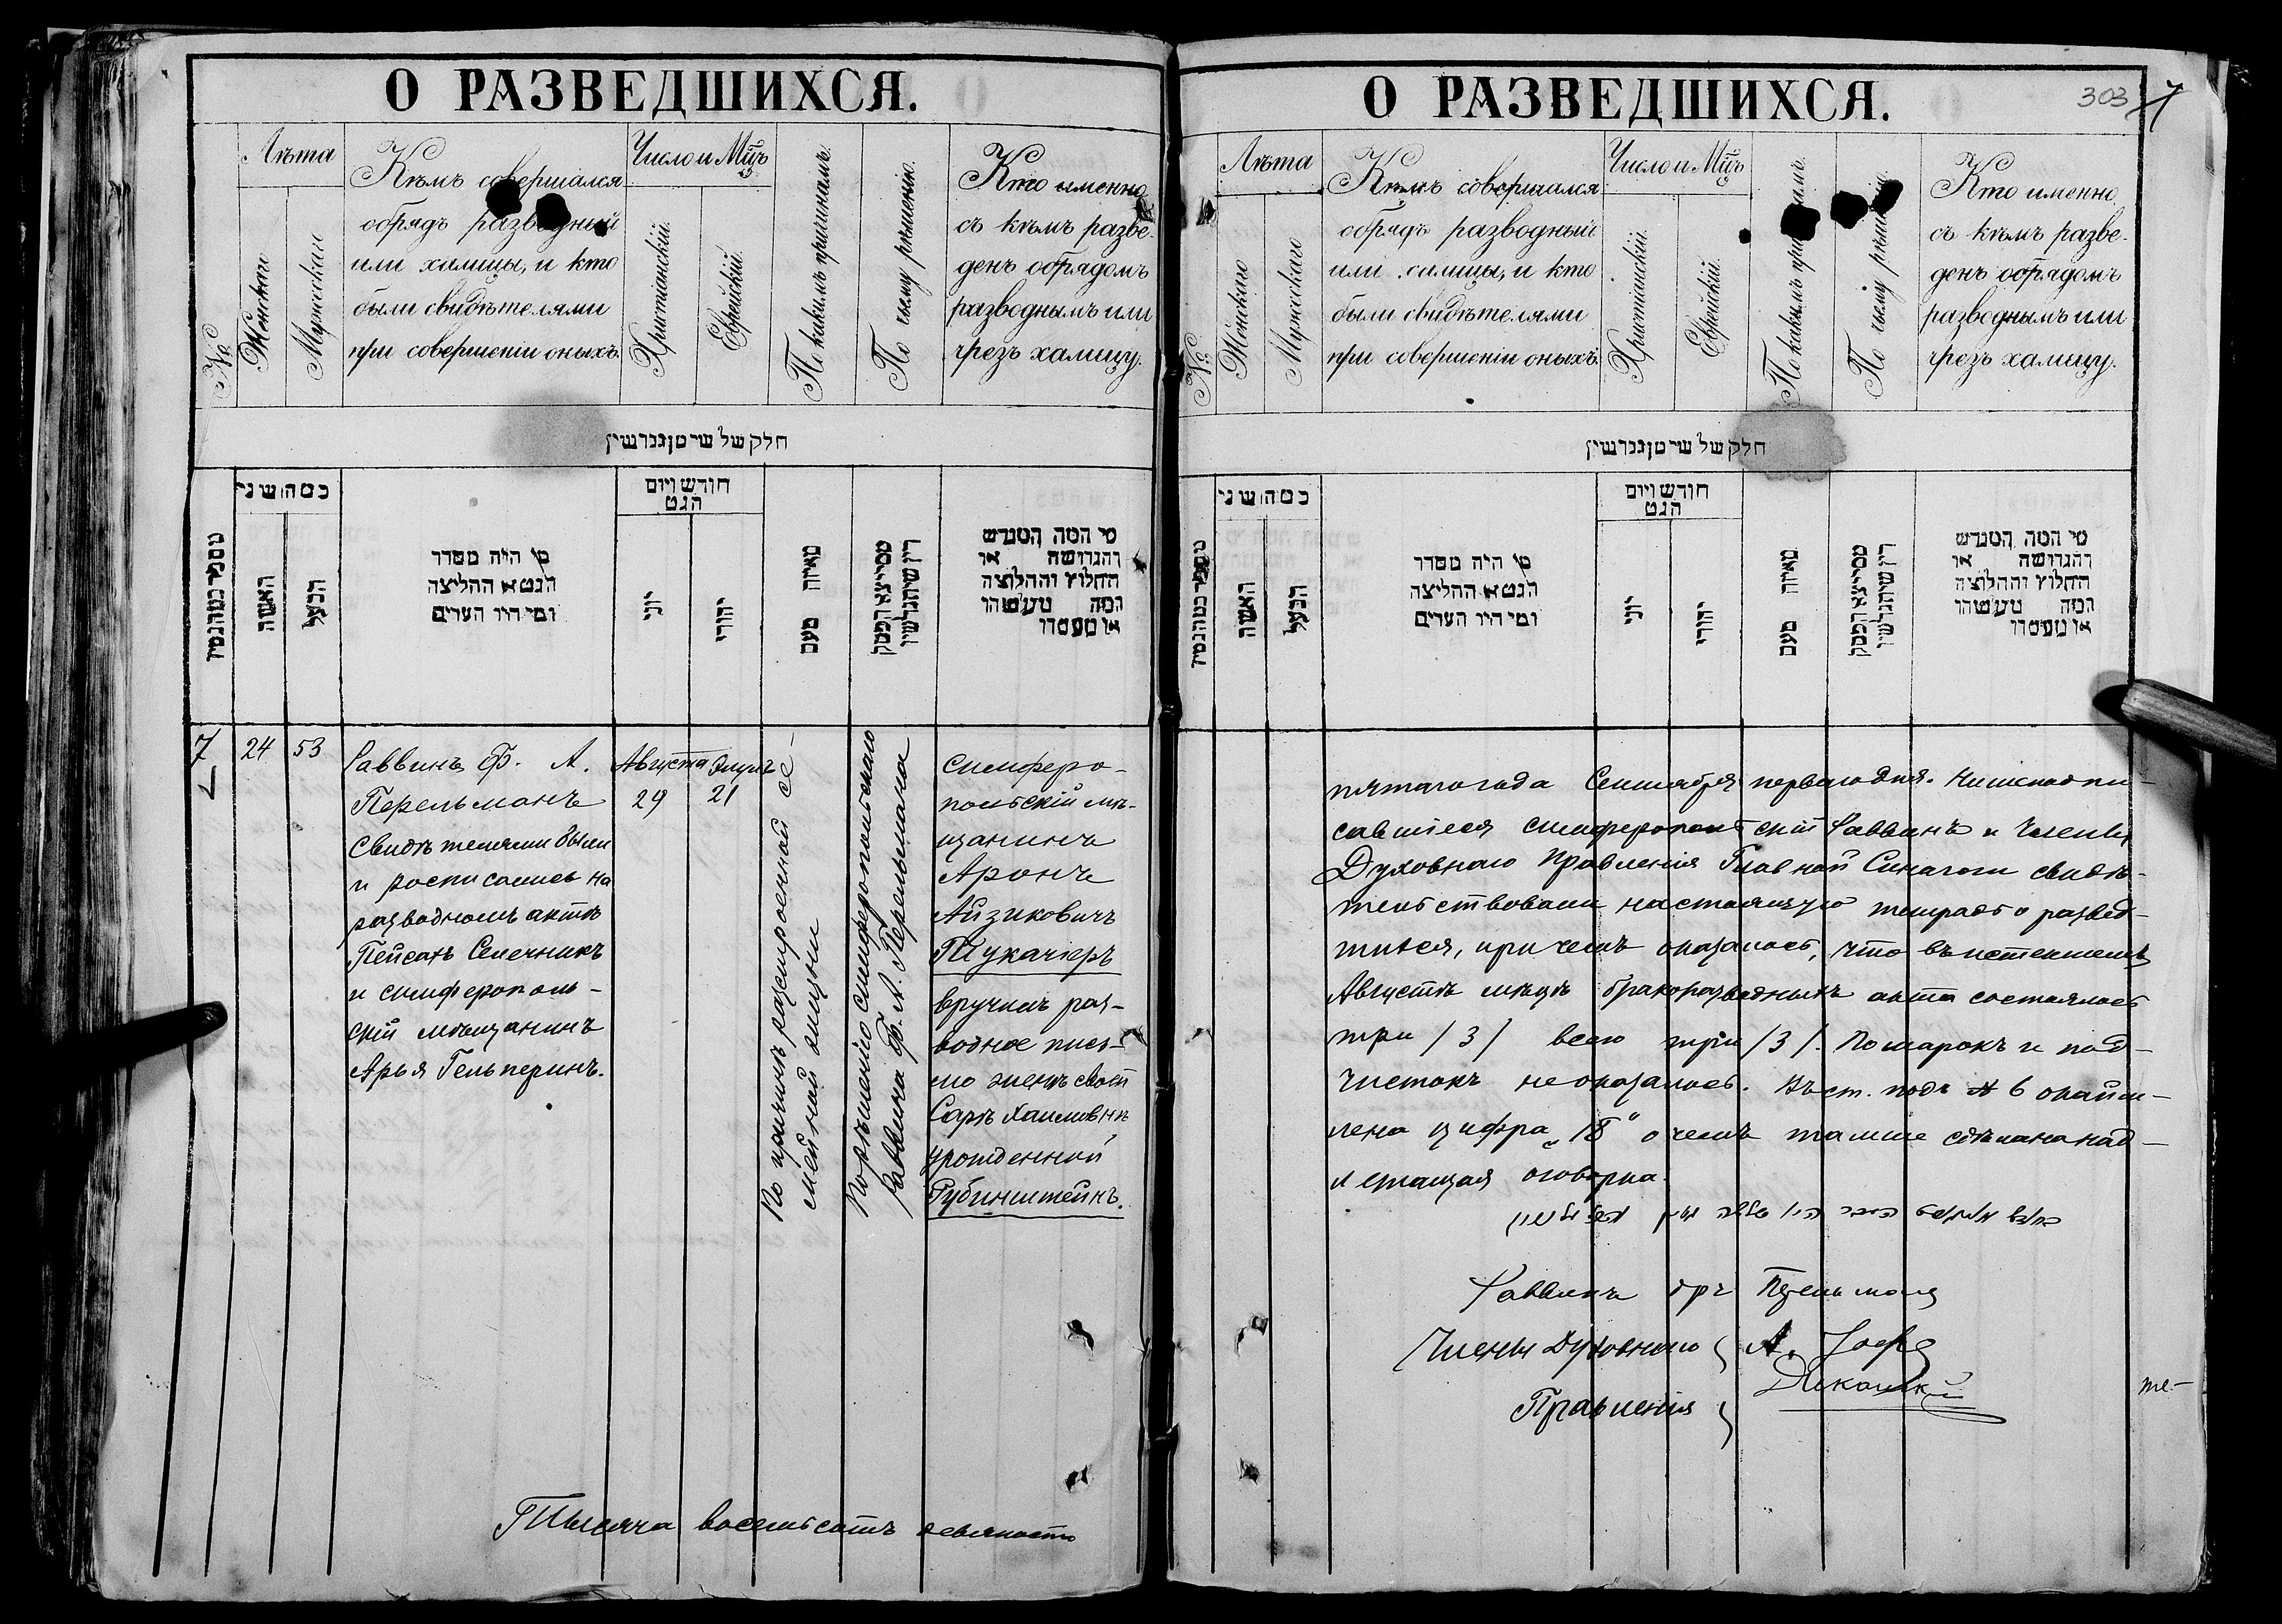 О РАЗВЕДШИХСЯ.
№
Лѣта
Женскаго
Мужескаго
Кѣмъ совершался
обрядъ разводный
или халицы, и кто
были свидѣтелями
при совершеніи оныхъ.
Число и Мцъ
Христіанскій.
Еврейскій.
По какимъ причинамъ.
По чьему рѣшенію.
Кто именно,
съ кѣмъ разве-
денъ обрядомъ
разводнымъ или
чрезъ халицу.
חלק של
כמה שני
האשה
הבעל
מי היה מסדר
הגט או החליצה
ומי היו העדים
חודש ויום
הגט
יוני
יהודי
מאיזה טעם
מי המה המגרש
והגרושה או
החלוץ והחלוצה
המה
או
7
24
53
Раввинъ Ф. А.
Перельманъ
Свидѣтелями были
и росписались на
разводномъ актѣ
Пейсахъ Семечникъ
и симферополь-
скій мѣщанинъ
Арья Гельперинъ.
Августа
29
Элулъ
21
По причинѣ разстроенной се-
мейной жизни
По рѣшенію симферопольскаго
раввина Ф. А. Перельмана
симферо-
польскій мѣ-
щанинъ
Аронъ
Айзиковичъ
Тукачіеръ
вручилъ раз-
водное пись-
мо женѣ своей
Сарѣ Хаимовнѣ
урожденной
Рубинштейнъ.
Тысяча восемьсотъ девяносто
О РАЗВЕДШИХСЯ.
303
7
№
Лѣта
Женскаго
Мужескаго
Кѣмъ совершался
обрядъ разводный
или халицы, и кто
были свидѣтелями
при совершеніи оныхъ.
Число и Мцъ
Христіанскій.
Еврейскій.
По какимъ
По чьему
Кто именно,
съ кѣмъ разве-
денъ обрядомъ
разводнымъ или
чрезъ халицу.
חלק של
כמה שני
האשה
הבעל
מי היה מסדר
הגט או החליצה
ומי היו העדים
חודש ויום
הגט
יוני
יהודי
מאיזה טעם
מי המה המגרש
והגרושה או
החלוץ והחלוצה
המה
או
пятаго года Сентября перваго дня. Нижеподпи-
савшіеся симферопольскій Раввинъ и Члены
Духовнаго Правленія Главной Синагоги свидѣ-
тельствовали настоящую тетрадь о развед-
шихся, при чемъ оказалось, что въ истекшемъ
Августѣ мѣсяцѣ бракоразводныхъ акта состоялось
три /3/ всего три /3/. Помарокъ и под-
чистокъ не оказалось. Въ ст. подъ № 6 окайм-
лена цифра „18“ о чемъ тамже сдѣлана над-
лежащая оговорка.
Раввинъ Перельманъ
Члены Духовнаго
Правленія
А. Іоффе
те-